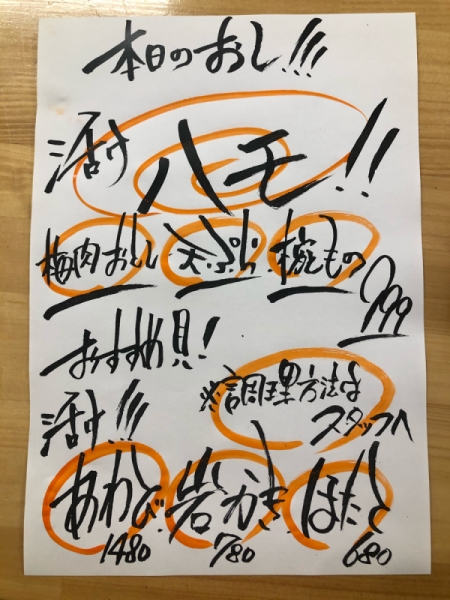 本日のおし!!!
活け ハモ!!
梅肉おとし 天ぷら 椀もの
799
おすすめ貝!
活け!!! ※調理方法は
スタッフへ
あわび 岩かき ほたて
1480 780 680